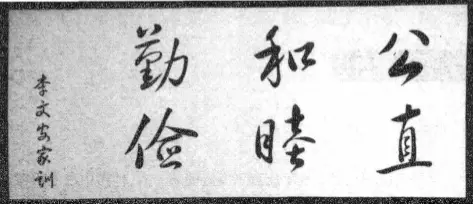 公直
和睦
勤俭
李文安家训